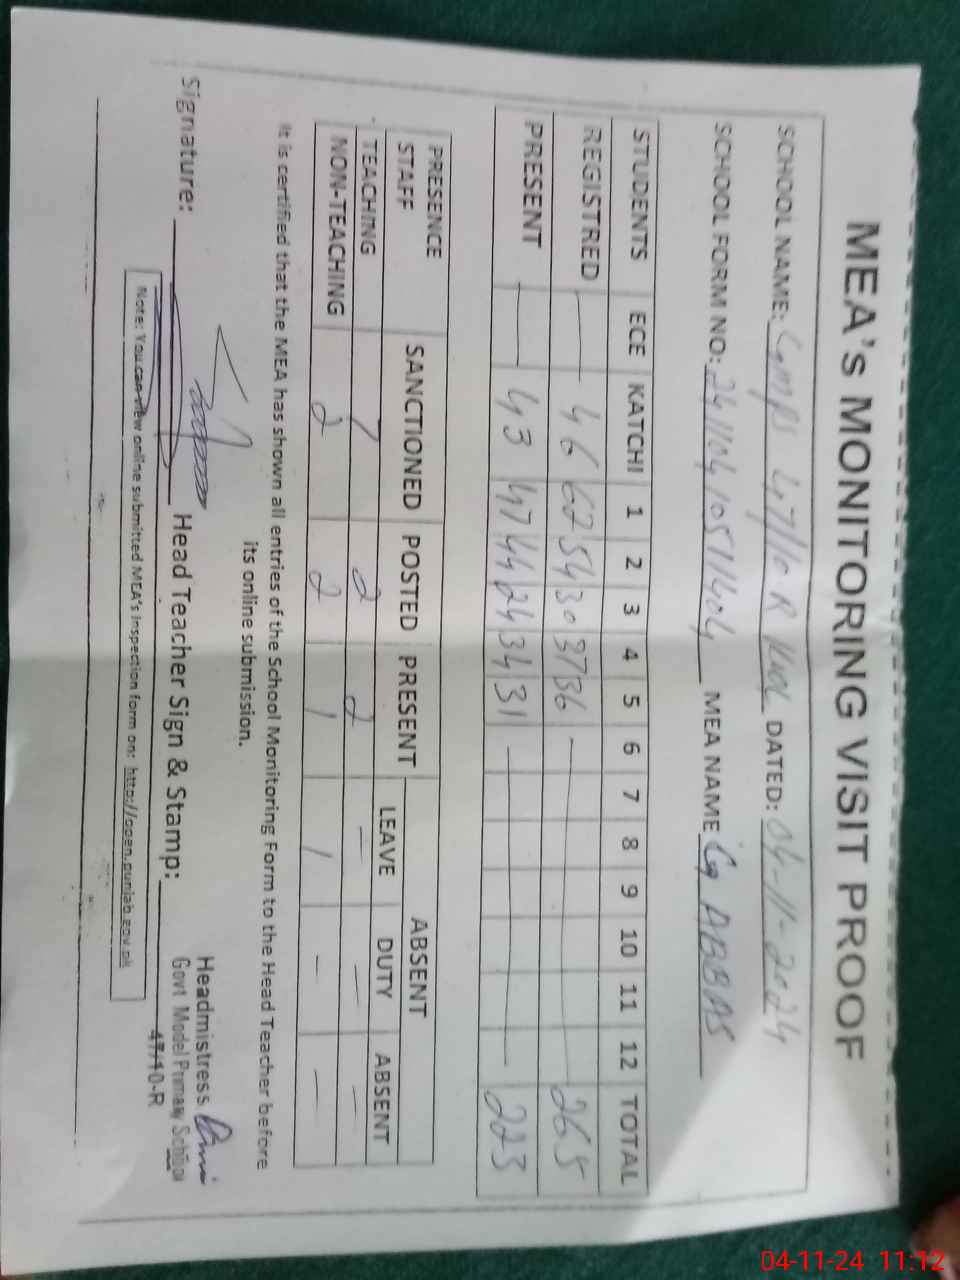 MEA's MONITORING VISIT PROOF
SCHOOL NAME: GMPS 47/10R KWL DATED: 04-11-2024
SCHOOL FORM NO: MEA NAME ABBAS
STUDENTS ECE KATCHI 1 2 3 4 5 6 7 8 9 10 11 12 TOTAL
REGISTRED — 46 62 54 30 37 36 — 265
PRESENT — 43 47 44 24 34 31 — 223
PRESENCE SANCTIONED POSTED PRESENT ABSENT
STAFF LEAVE DUTY ABSENT
TEACHING 7 2 2 — — —
NON-TEACHING 2 2 1 1 — —
It is certified that the MEA has shown all entries of the School Monitoring Form to the Head Teacher before
its online submission.
Signature: Head Teacher Sign & Stamp:
Headmistress
Govt Model Primary School
47/10-R
Note: You can view online submitted MEA's inspection form on: http://open.punjab.gov.pk
04-11-24 11:12